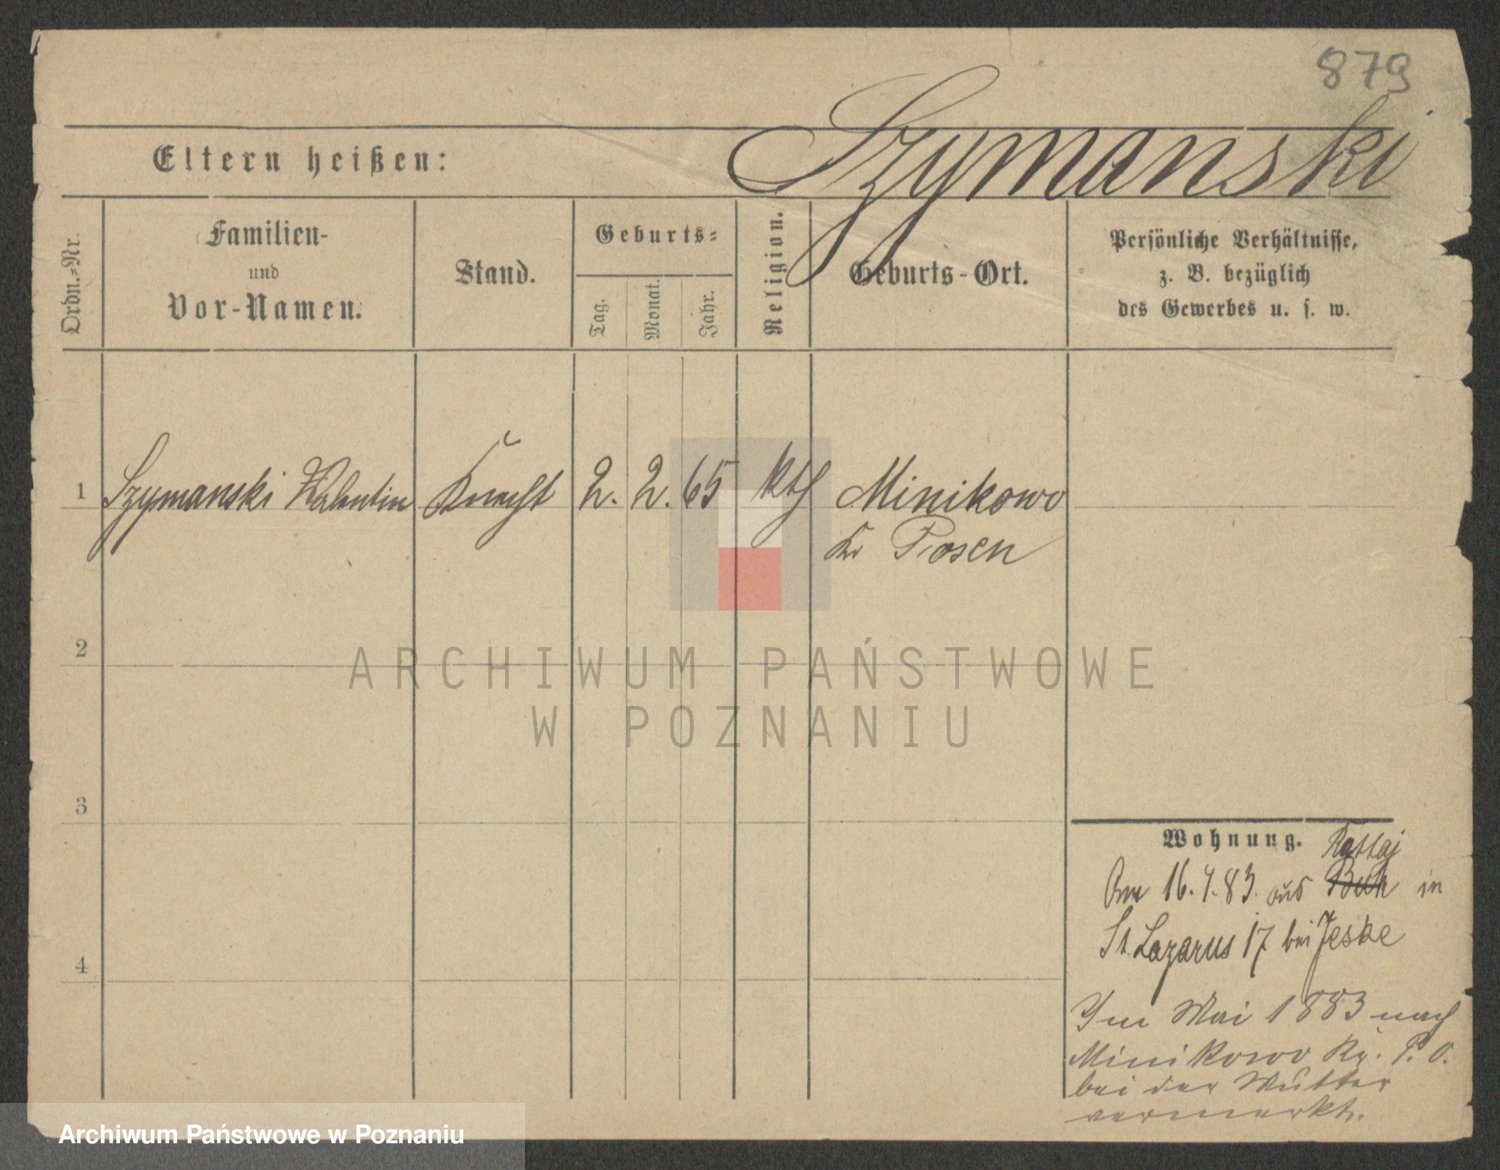 879
Szymanski
Eltern heißen:
Ordn.=Nr.
Familien-
und
Vor-Namen.
Stand.
Geburts=
Tag.
Monat.
Jahr.
Religion.
Geburts-Ort.
Persönliche Verhältnisse,
z. B. bezüglich
des Gewerbes u. s. w.
1 Szymanski Valentin Knecht 2. 2. 65 kth Minikowo
Kr Posen
2
3
4
Wohnung. Rattaj
Am 16.4.83. aus Buk in
St. Lazarus 17 bei Jeske
Im Mai 1883 nach
Minikowo P. O.
bei der Mutter
vermerkt.
ARCHIWUM PAŃSTWOWE
W POZNANIU
Archiwum Państwowe w Poznaniu